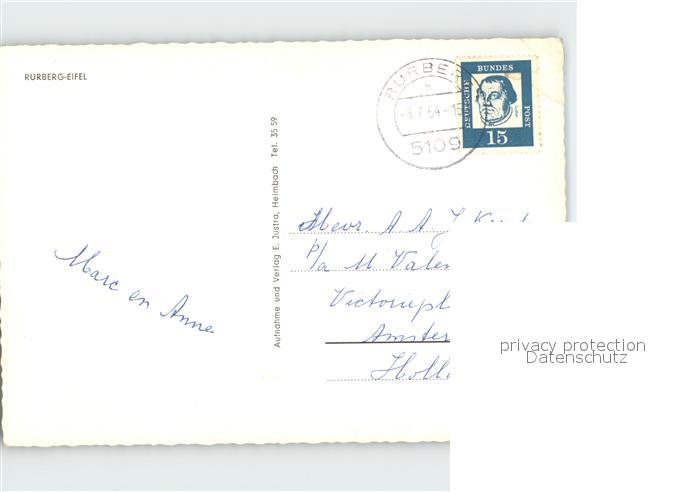 RURBERG-EIFEL
RURBER
h
-8.7.64-15
5109
DEUTSCHE BUNDES POST
15
Aufnahme und Verlag E. Justra, Heimbach Tel. 3559
Marc en Anne
Mevr. A A J
p/a M Valen
Victoriepl
Amster
Holl
privacy protection
Datenschutz